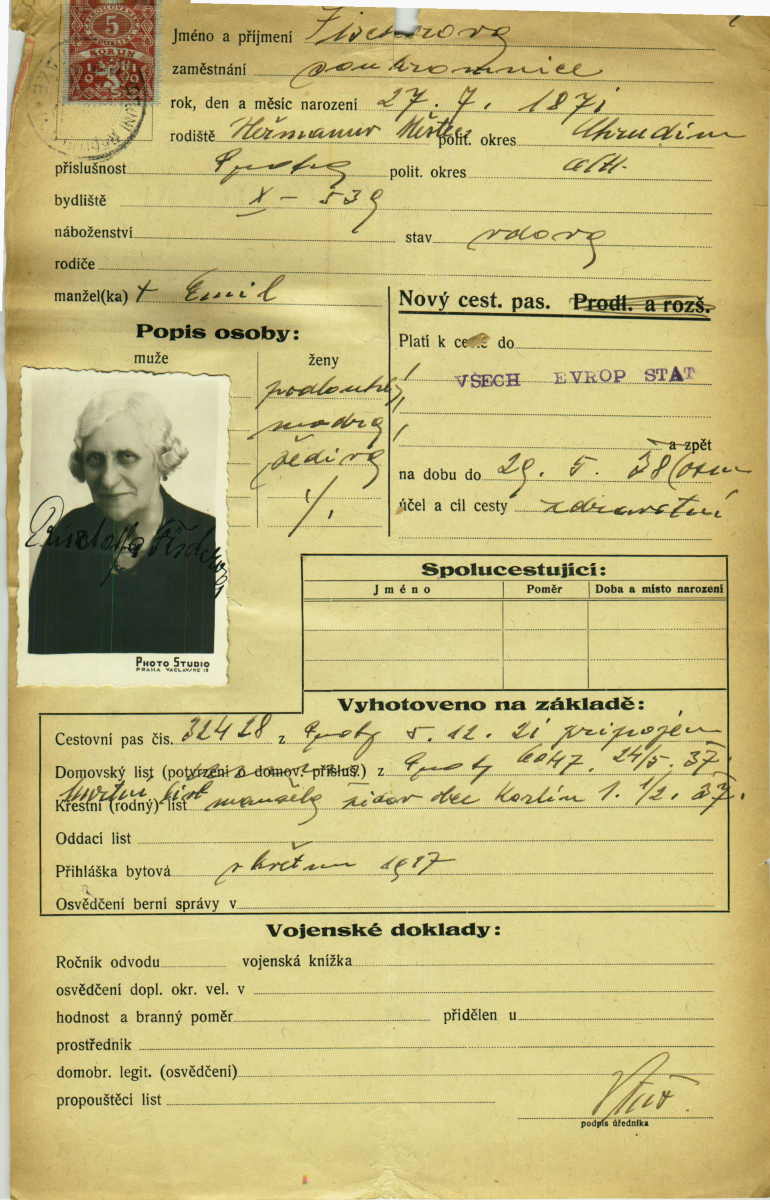 5
Jméno a příjmení Fischerova
zaměstnání soukromnice
rok, den a měsíc narození 27. 7. 1871
rodiště Heřmanův Městec polit. okres Chrudim
příslušnost Praha polit. okres
bydliště X – 539
náboženství stav vdova
rodiče
manžel(ka) + Emil
Nový cest. pas. Prodl. a rozš.
Popis osoby:
muže ženy
Platí k cestě do
podlouhlý
VŠECH EVROP STAT
modrá
šedivá
a zpět
na dobu do 29. 5. 38
účel a cíl cesty zdravotní
Fischerova
PHOTO STUDIO
Spolucestující:
Jméno Poměr Doba a místo narození
Vyhotoveno na základě:
Cestovní pas čís. 32428 z Prahy 5. 12. 21 připojen
Domovský list (potvrzení o domov. přísluš.) z Prahy 24/5. 37.
Úmrtní list
Křestní (rodný) list manžela Karlín 1. 1/2. 37.
Oddací list
Přihláška bytová v květnu 1917
Osvědčení berní správy v
Vojenské doklady:
Ročník odvodu vojenská knížka
osvědčení dopl. okr. vel. v
hodnost a branný poměr přidělen u
prostředník
domobr. legit. (osvědčení)
propouštěcí list
podpis úředníka